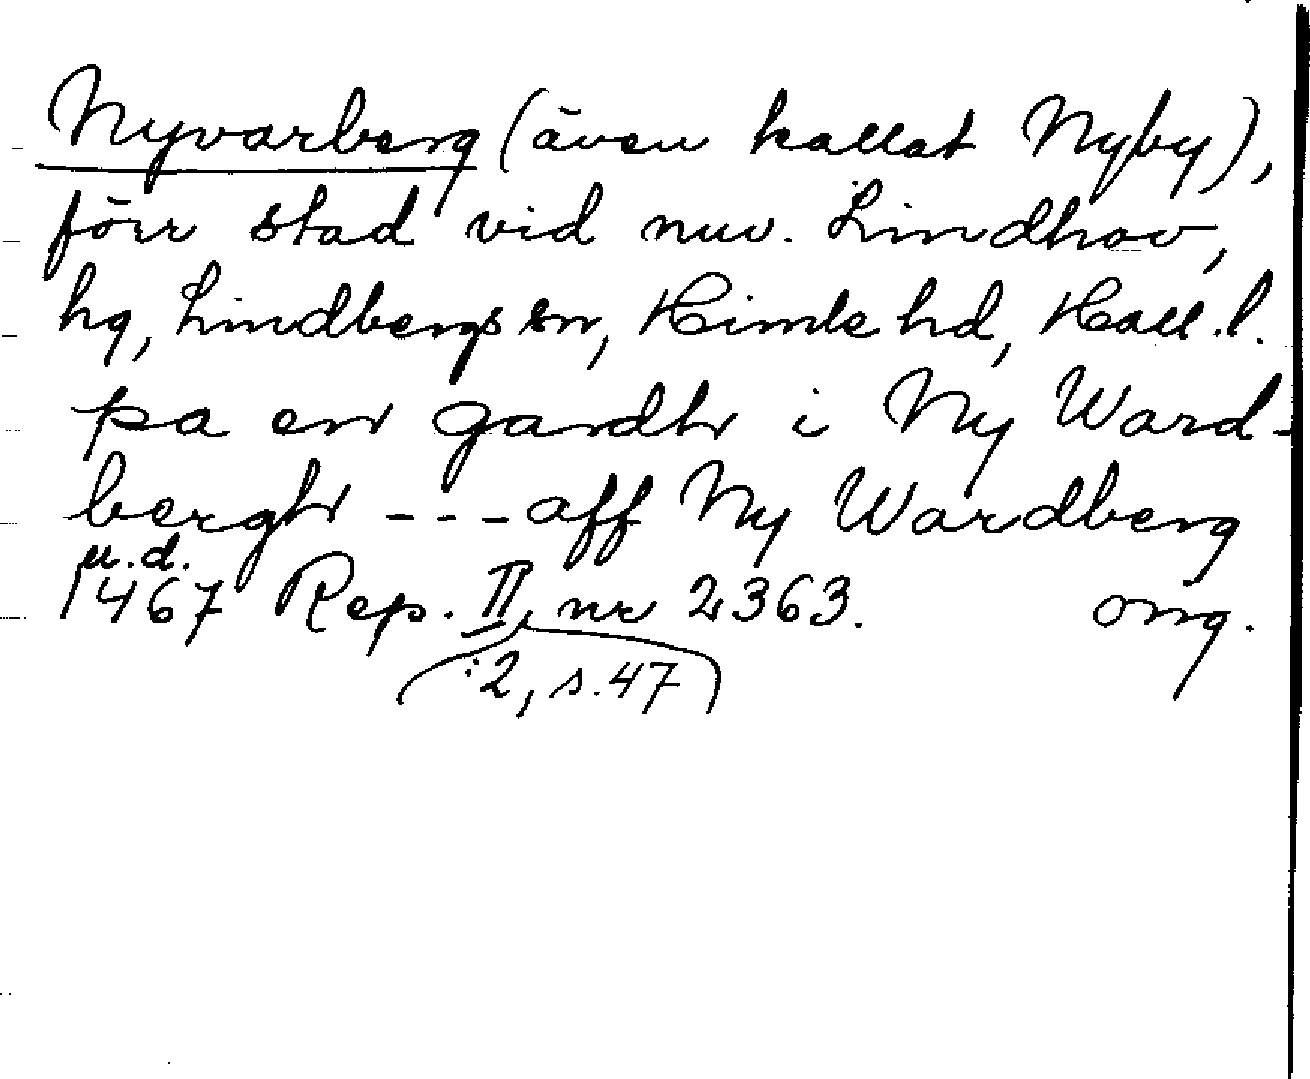 Nyvarberg (även kallat Nyby),
förr stad vid nuv. Lindhov,
hg, Lindbergs sn, Himle hd, Hall. l.
pa en gardh i Ny Ward-
bergh --- aff Ny Wardberg
u.d.
1467 Rep. II, nr 2363. orig.
:2, s. 47